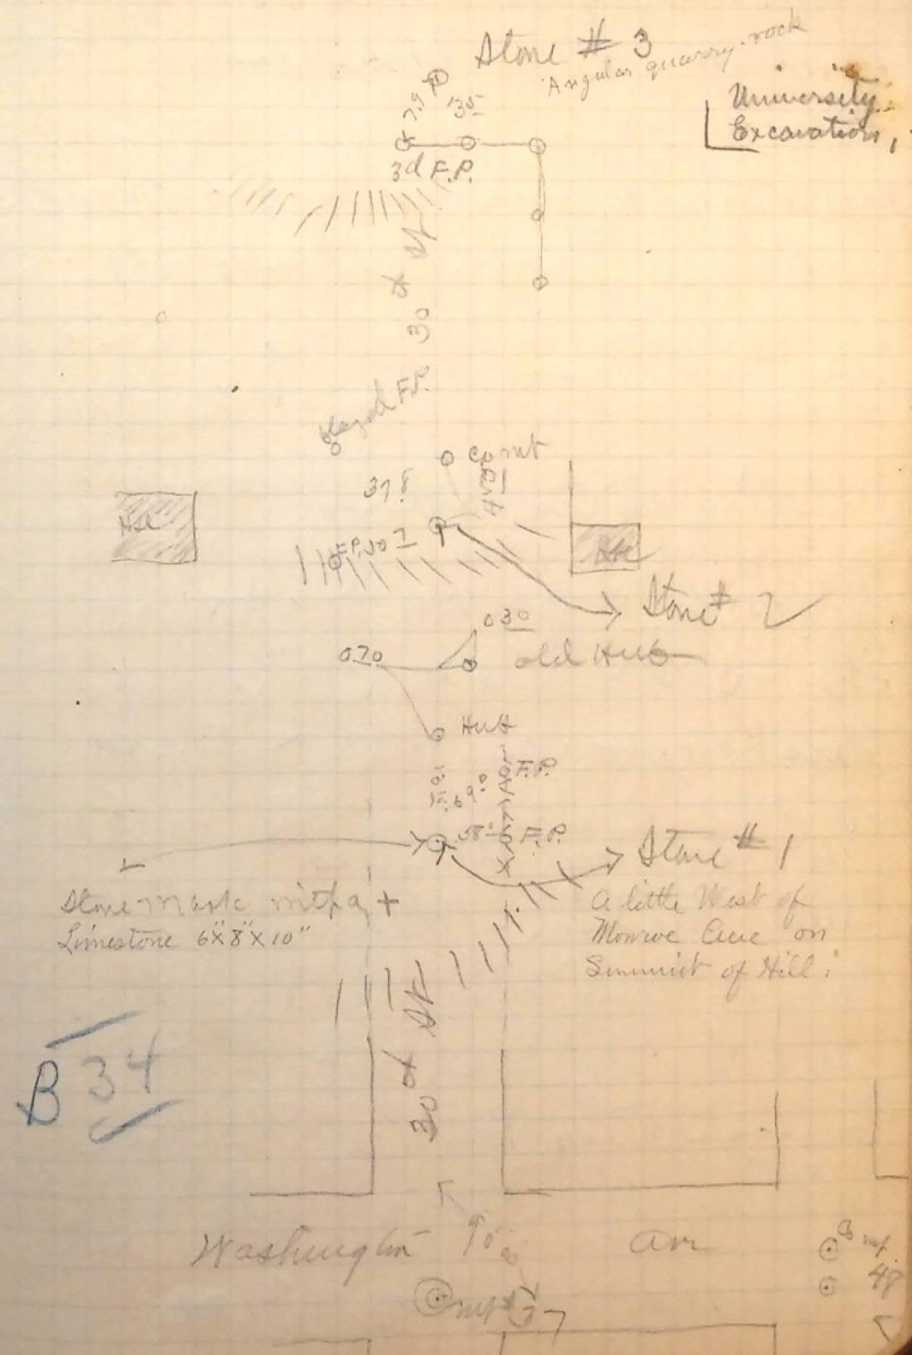 Stone # 3
Angular quarry rock
University
Excavation,
7.9
135
3d F.P.
30 x St
F.P.
Co mt
378
Hse
F.P. 30 7
Hse
Stone # 2
030
070
old Hub
Hub
F.P.
69°
58° F.P.
Stone # 1
Stone Mark with a +
Limestone 6"x8"x10"
A little West of
Monroe Ave on
Summit of Hill.
30 x St
B 34
Washington Av
mt
48
mt 37